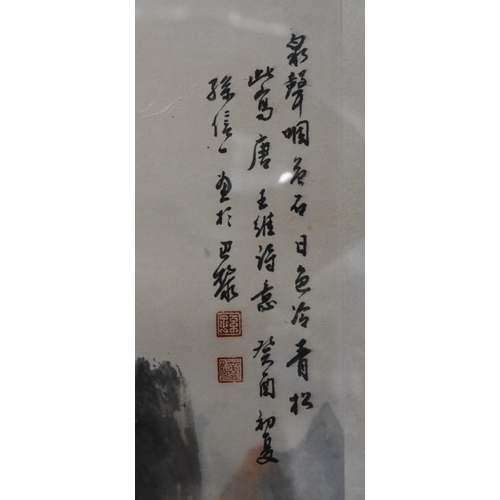 泉聲咽危石日色冷青松
此寫唐王維詩意 癸酉初夏
孫信一畫於巴黎